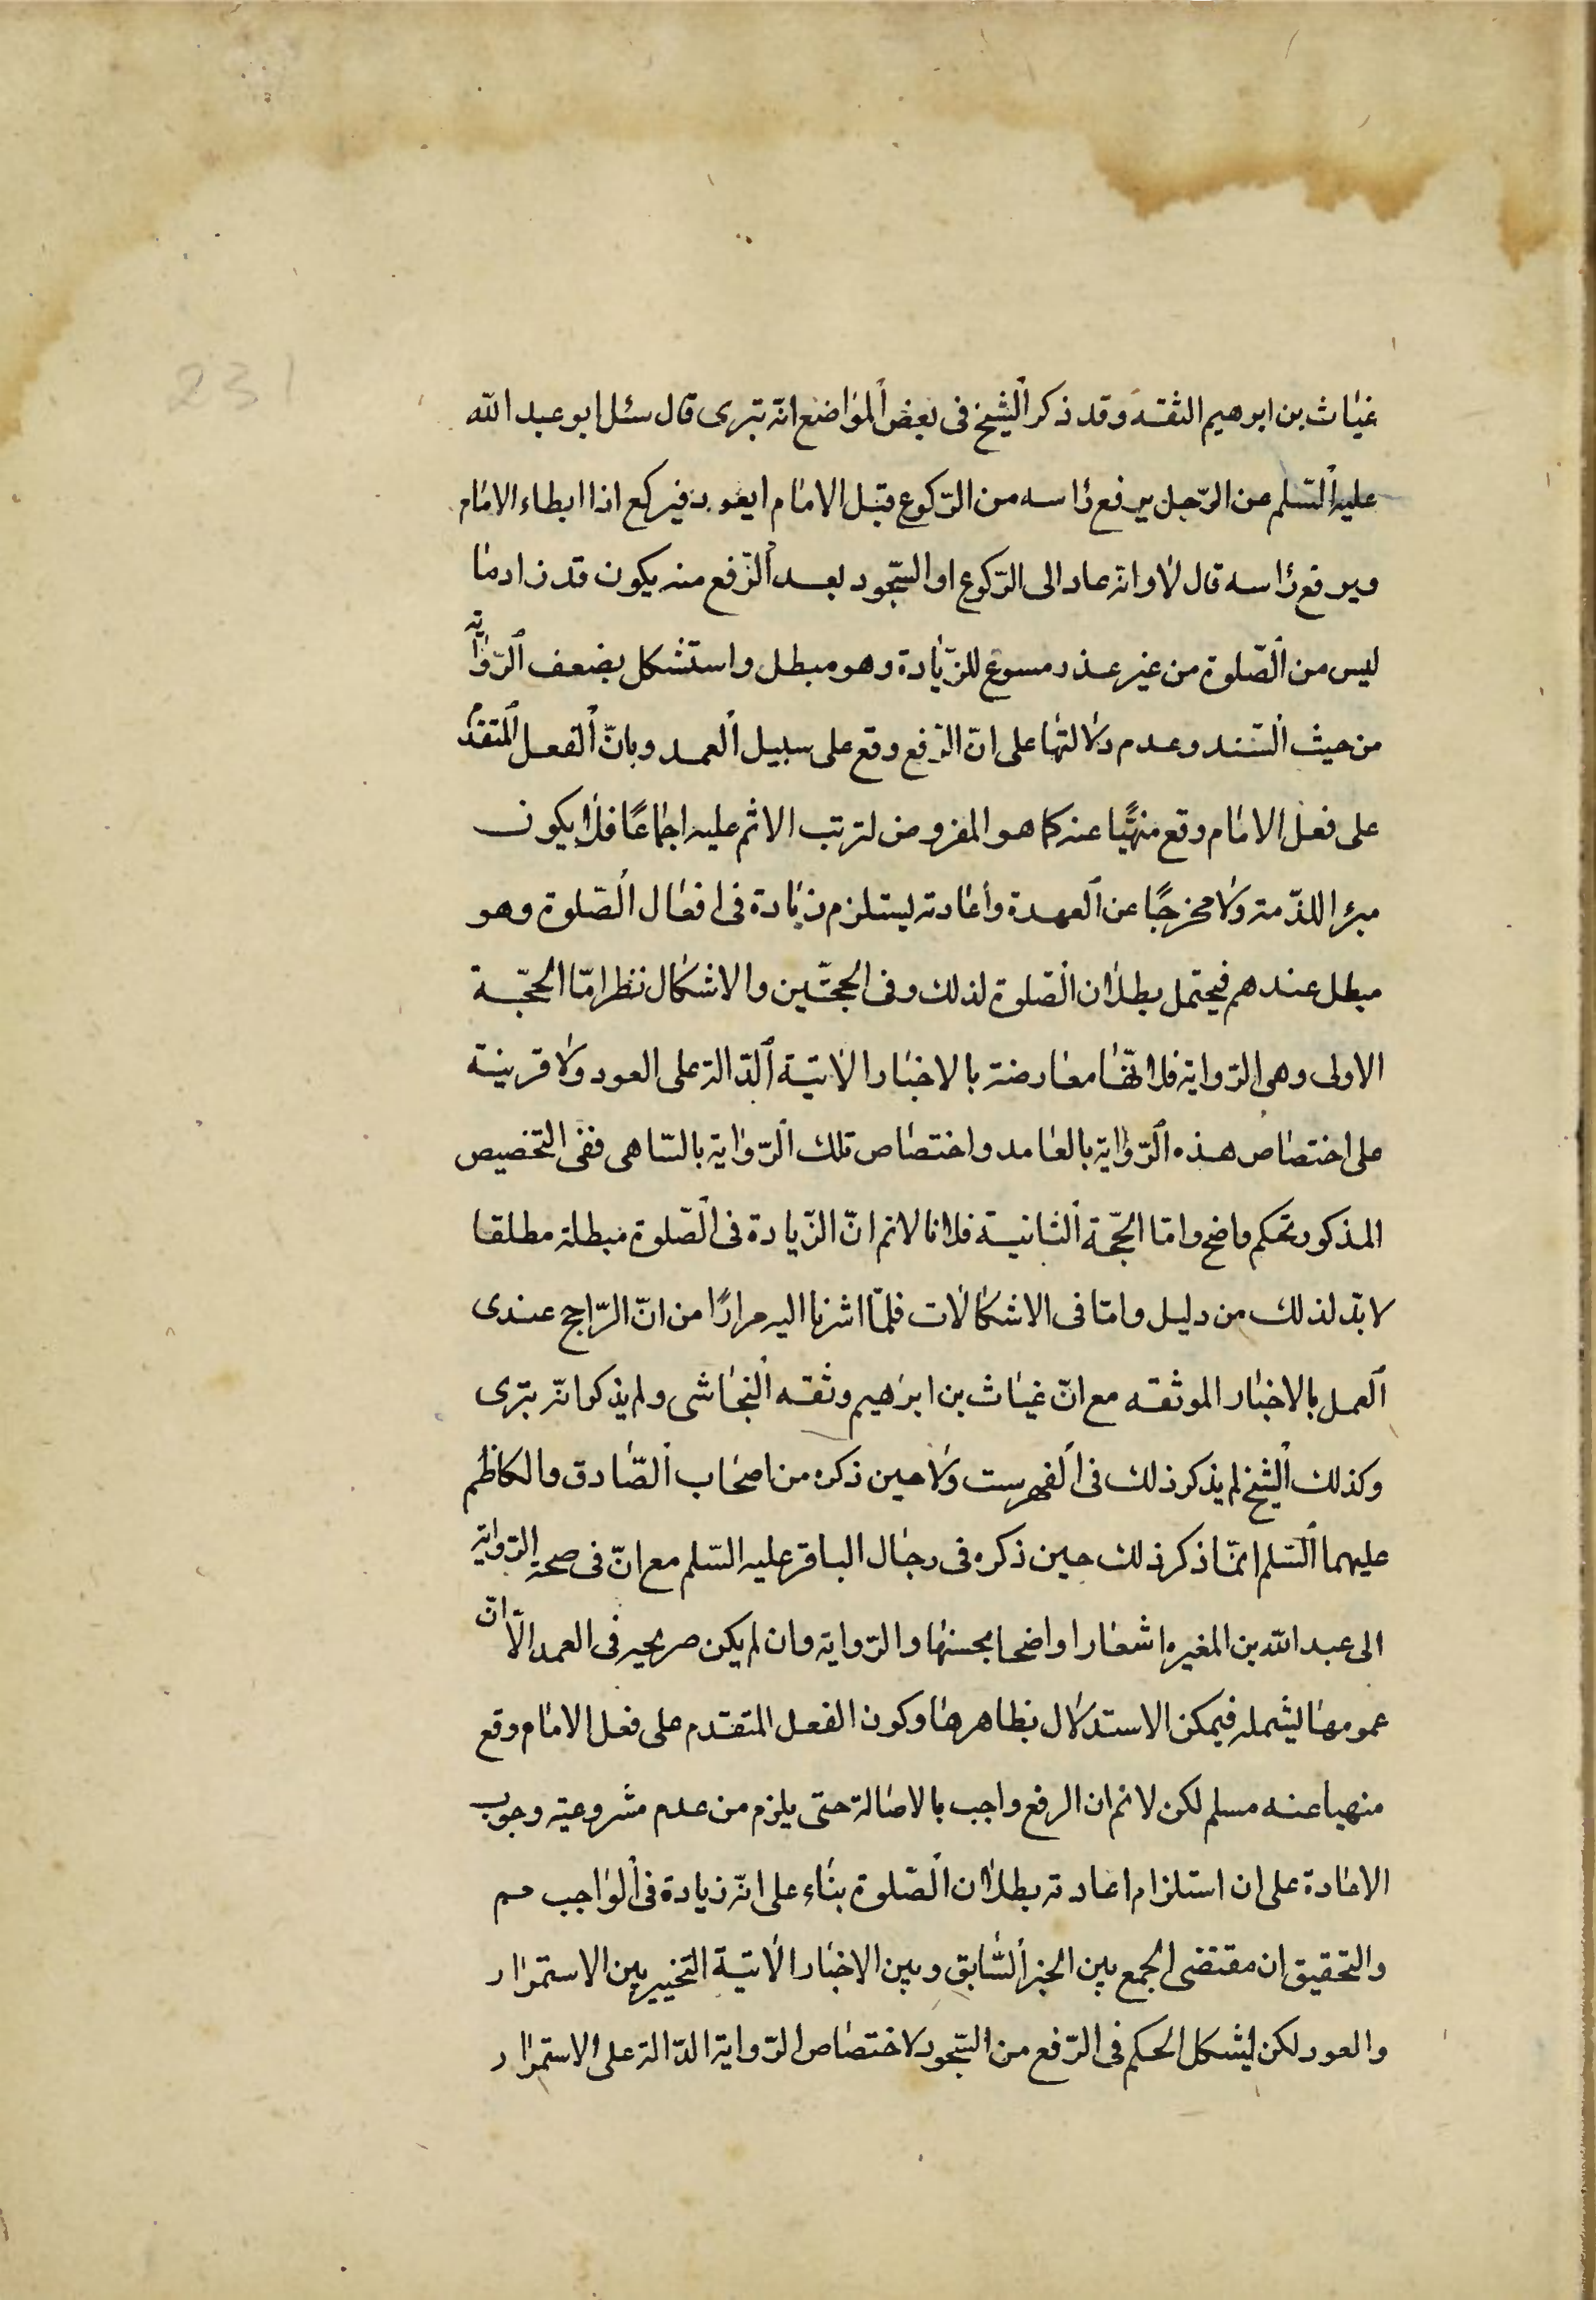 231
غياث بن ابرهيم الثقة وقد ذكر الشيخ فى بعض المواضع انه بترى قال سئل ابو عبد الله
عليه السلم عن الرّجل يرفع رأسه من الرّكوع قبل الامام ايعود فيركع اذا ابطاء الامام
ويرفع رأسه قال لا وانه عاد الى الرّكوع او السّجود بعد الرّفع منه يكون قد زاد ما
ليس من الصّلوة من غير عذر مسوغ للزّيادة وهو مبطل واستشكل بضعف الرّواية
من حيث السّند وعدم دلالتها على انّ الرّفع وقع على سبيل العمد وبانّ الفعل المتقدم
على فعل الامام وقع منهيًّا عنه كما هو المفروض لترتب الاثم عليه اجماعًا فلا يكون
مبرا للذّمة ولا مخرجًا عن العهدة واعادته يستلزم زيادة فى افعال الصّلوة وهو
مبطل عندهم فيحتمل بطلان الصّلوة لذلك وفى الحجّتين والاشكال نظر امّا الحجّة
الاولى وهى الرّواية فلانّها معارضة بالاخبار الاتية الدّالة على العود ولا قرينة
على اختصاص هذه الرّواية بالعامد واختصاص تلك الرّواية بالسّاهى ففى التخصيص
المذكور تحكم واضح وامّا الحجّة الثانية فلانا لانم انّ الزّيادة فى الصّلوة مبطلة مطلقا
لا بدّ لذلك من دليل وامّا فى الاشكالات فلمّا اشرنا اليه مرارًا من انّ الرّاجح عندى
العمل بالاخبار الموثقه مع انّ غياث بن ابرهيم وثقه النجاشى ولم يذكر انّه بترى
وكذلك الشيخ لم يذكر ذلك فى الفهرست ولا حين ذكره من اصحاب الصّادق والكاظم
عليهما السّلم انمّا ذكر ذلك حين ذكره فى رجال الباقر عليه السّلم مع انّ فى صحة الرّواية
الى عبد الله بن المغيره اشعارا واضحا بحسنها والرّواية وان لم يكن صريحه فى العمد الّا انّ
عمومها يشمله فيمكن الاستدلال بظاهرها وكون الفعل المتقدم على فعل الامام وقع
منهيا عنه مسلم لكن لانم ان الرفع واجب بالاصالة حتى يلزم من عدم مشروعيته وجوب
الاعادة على ان استلزام اعادته بطلان الصّلوة بناء على انّه زيادة فى الواجب مم
والتحقيق ان مقتضى الجمع بين الخبر السّابق وبين الاخبار الاتية التخيير بين الاستمرار
والعود لكن يشكل الحكم فى الرّفع من السّجود لاختصاص الرّواية الدّالة على الاستمرار